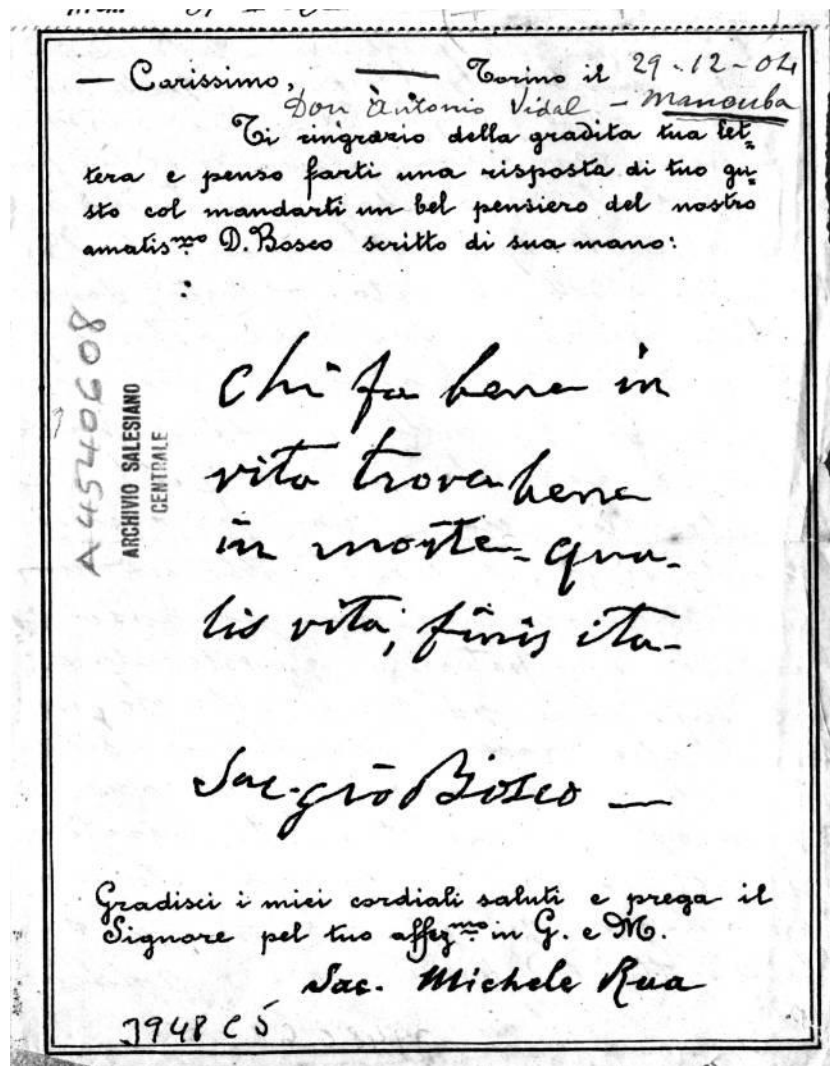 — Carissimo, — Torino il 29-12-04
Don Antonio Vidal – Manouba
Ti ringrazio della gradita tua let-
tera e penso farti una risposta di tuo gu-
sto col mandarti un bel pensiero del nostro
amatis.mo D. Bosco scritto di sua mano:
A4540608
ARCHIVIO SALESIANO
CENTRALE
Chi fa bene in
vita trova bene
in morte – qua-
lis vita, finis ita –
Sac. Gio Bosco —
Gradisci i miei cordiali saluti e prega il
Signore pel tuo affez.mo in G. e M.
Sac. Michele Rua
3948 C 5